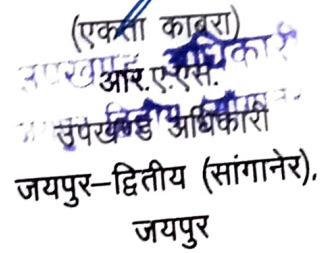 (एकता काबरा)
आर.ए.एस.
उपखण्ड अधिकारी
जयपुर-द्वितीय (सांगानेर),
जयपुर